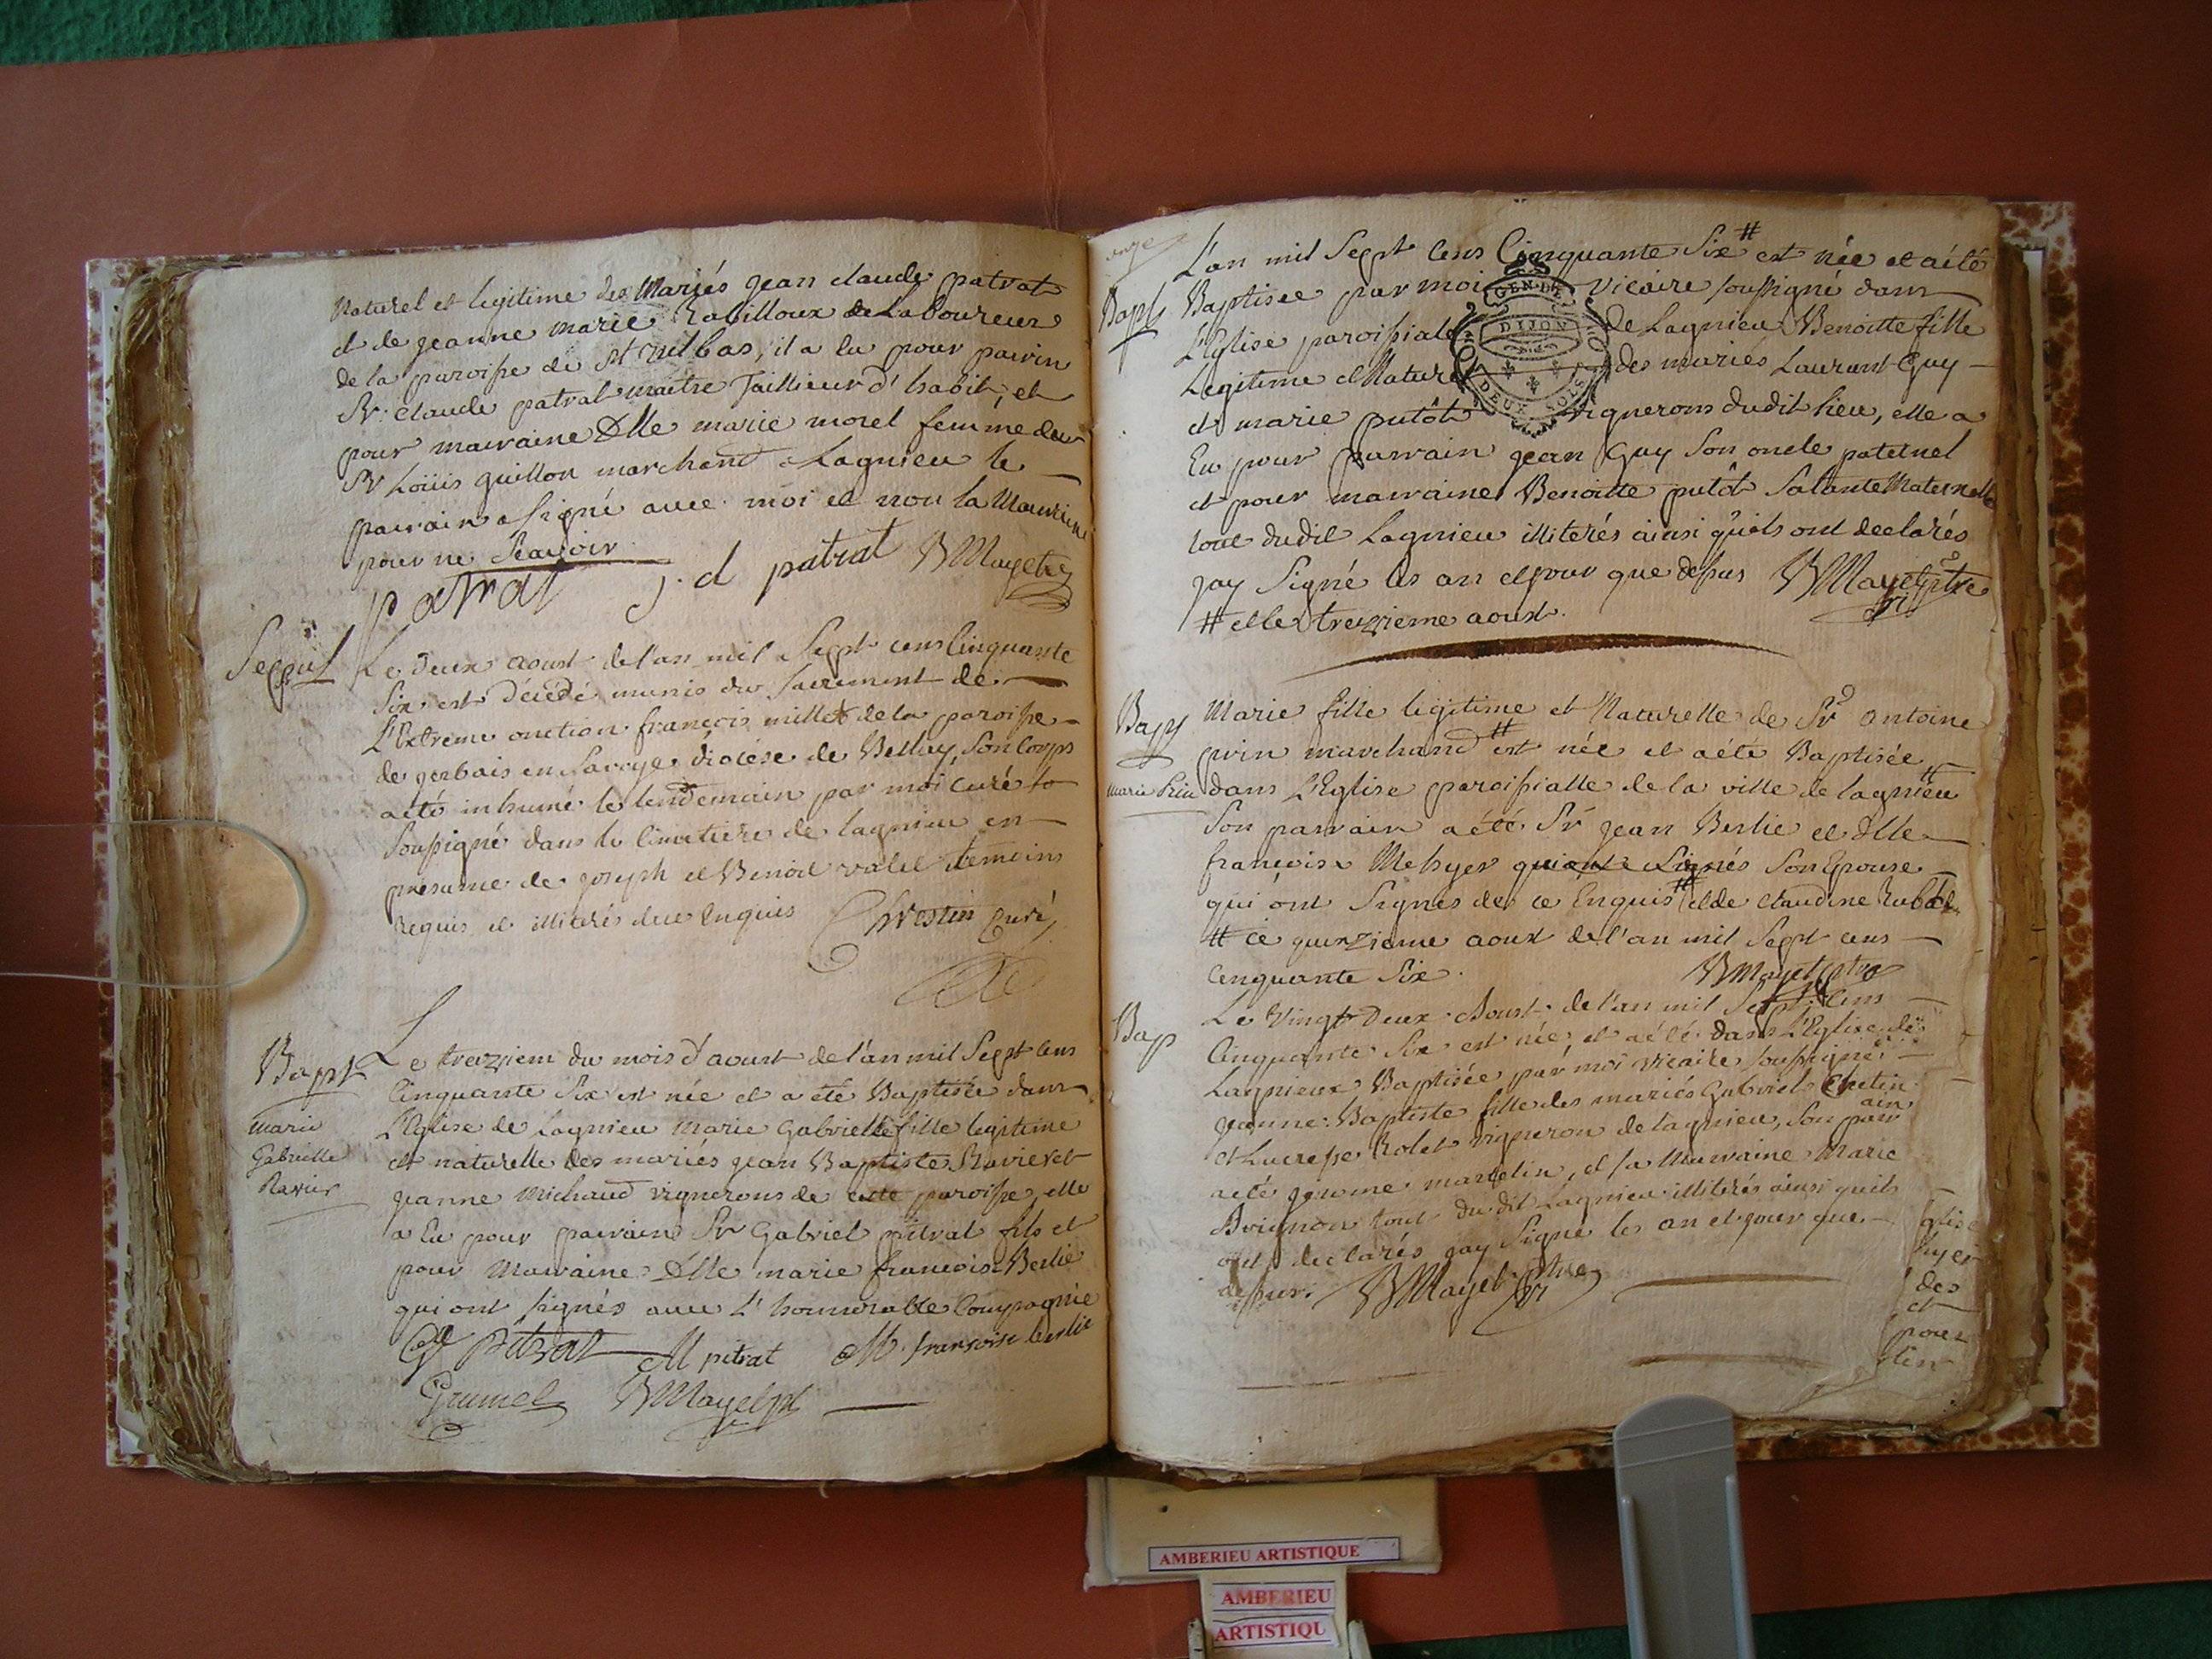 Naturel et legitime des Mariés jean claude patrat
et de jeanne marie Rabilloux de Laboureur
de la paroisse de st vulbas, il a Eu pour parrin
Sr. claude patrat maitre Taillieur d'habit, et
pour marraine Dlle marie morel femme du
Sr Loüis guillon marchand a Lagnieu le
parrain a signé avec moi et non la Marraine
pour ne Scavoir
patrat j. d patrat BMayet
Sepul
Le deux aoust de l'an mil Sept cens Cinquante
Six est décédé munis du Sacrement de
L'Extreme onction françois millet de la paroisse
de gerbais en Savoye, diocése de Belley, Son Corps
aété inhumé le lendemain par moi curé
Soussigné dans le Cimetiere de lagnieu en
presance de joseph et Benoit valel temoins
Requis et illiteré deue Enquis Chrestin Curé
Bapt
marie
Gabrielle
Ravier
Le treizieme du mois d'aoust de l'an mil Sept Cens
Cinquante Six est née et a été Baptisée dans
L'Eglise de Lagnieu Marie Gabrielle fille legitime
et naturelle des mariés jean Baptiste Ravier et
jeanne Michaud vignerons de cette paroisse, elle
a Eu pour parrain Sr Gabriel pitrat fils et
pour Marraine Dlle marie françoise Berlié
qui ont signés avec L'honnorable Compagnie
G pitrat M pitrat M. françoise berlié
Grumel BMayet
L'an mil Sept Cens Cinquante Six # est née et aété
Bapt
Baptisée par moi vicaire soussigné dans
L'Eglise paroissiale de Lagnieu Benoitte fille
Legitime et Naturel des mariés Laurant Guy
et marie putôt vignerons dudit lieu, elle a
GEN DE
DIJON
DEUX SOLS
Eu pour parrain jean Guy Son oncle paternel
et pour marraine Benoitte putôt Sa tante Maternelle
tout dudit Lagnieu illiterés ainsi qu'ils ont declarés
jay Signé les an et jour que dessus BMayet ptre
# et le treizieme aoust. vi
Bap
marie Prin
Marie fille legitime et Naturelle de Sr antoine
prin marchand # est née et aété Baptisée
dans L'Eglise paroissialle de la ville de lagnieu #
Son parrain a été Sr jean Berlie et Dlle
françoise Mehyer qui ont Signés Son Epouse
qui ont Signés de ce Enquis # et de claudine
# ce quinzieme aoust de l'an mil Sept cens
Cinquante Six. BMayet ptre
Bap
Le Vingt Deux Aoust de l'an mil Sept Cens
Cinquante Six est née et aété dans L'Eglise de
Lagnieux Baptisée par moi vicaire soussigné
jeanne Baptiste fille des mariés Gabriel Chetin
et Lucresse Rolet vigneron de lagnieu, Son parrain
aeté jerome martelin, et sa Marraine Marie
Brignon tout du dit Lagnieu illiterés ainsi quils
ont declarés jay Signé les an et jour que
dessus. BMayet ptre vi
glise
hyer
des
et
pour
tin
AMBERIEU ARTISTIQUE
AMBERIEU
ARTISTIQU